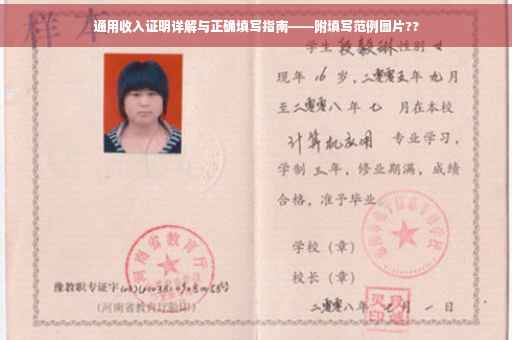 通用收入证明详解与正确填写指南——附填写范例图片??
样本
学生段毅琳性别女
现年16岁,二零零五年九月
至二零零八年七月在本校
计算机应用 专业学习,
学制三年,修业期满,成绩
合格,准予毕业
学校(章)
校长(章)
二零零八年七月一日
河南省教育厅
豫教职专证字
(河南省教育厅验印)